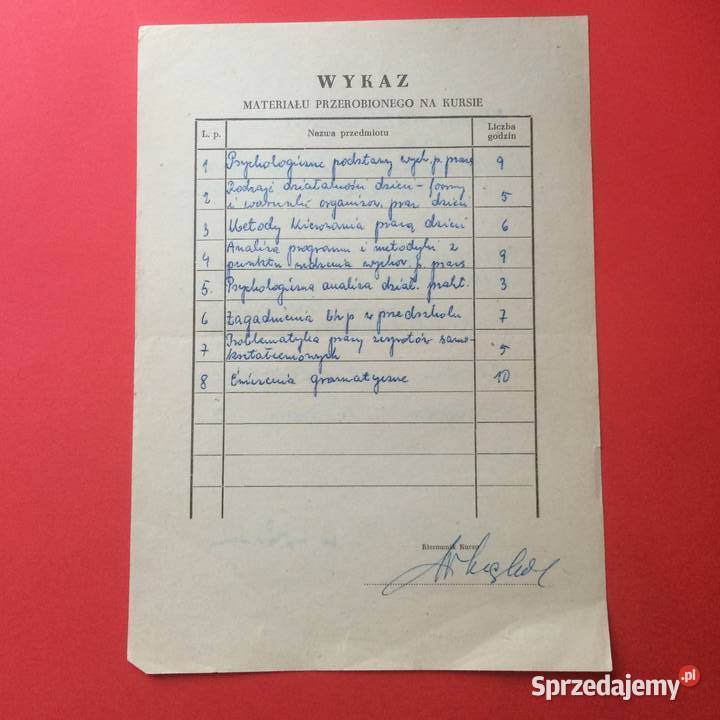 WYKAZ
MATERIAŁU PRZEROBIONEGO NA KURSIE
L. p. Nazwa przedmiotu Liczba godzin
1 Psychologiczne podstawy wych. p. pracę 9
2 Rodzaje działalności dzieci – formy
i warunki organizow. prac dzieci 5
3 Metody kierowania pracą dzieci 6
4 Analiza programu i metodyki z
punktu widzenia wychow. p. pracę 9
5. Psychologiczna analiza dział. prakt. 3
6 Zagadnienia bhp w przedszkolu 7
7 Problematyka pracy zespołów samo-
kształceniowych 5
8 Ćwiczenia gramatyczne 10
Kierownik Kursu
Sprzedajemy.pl